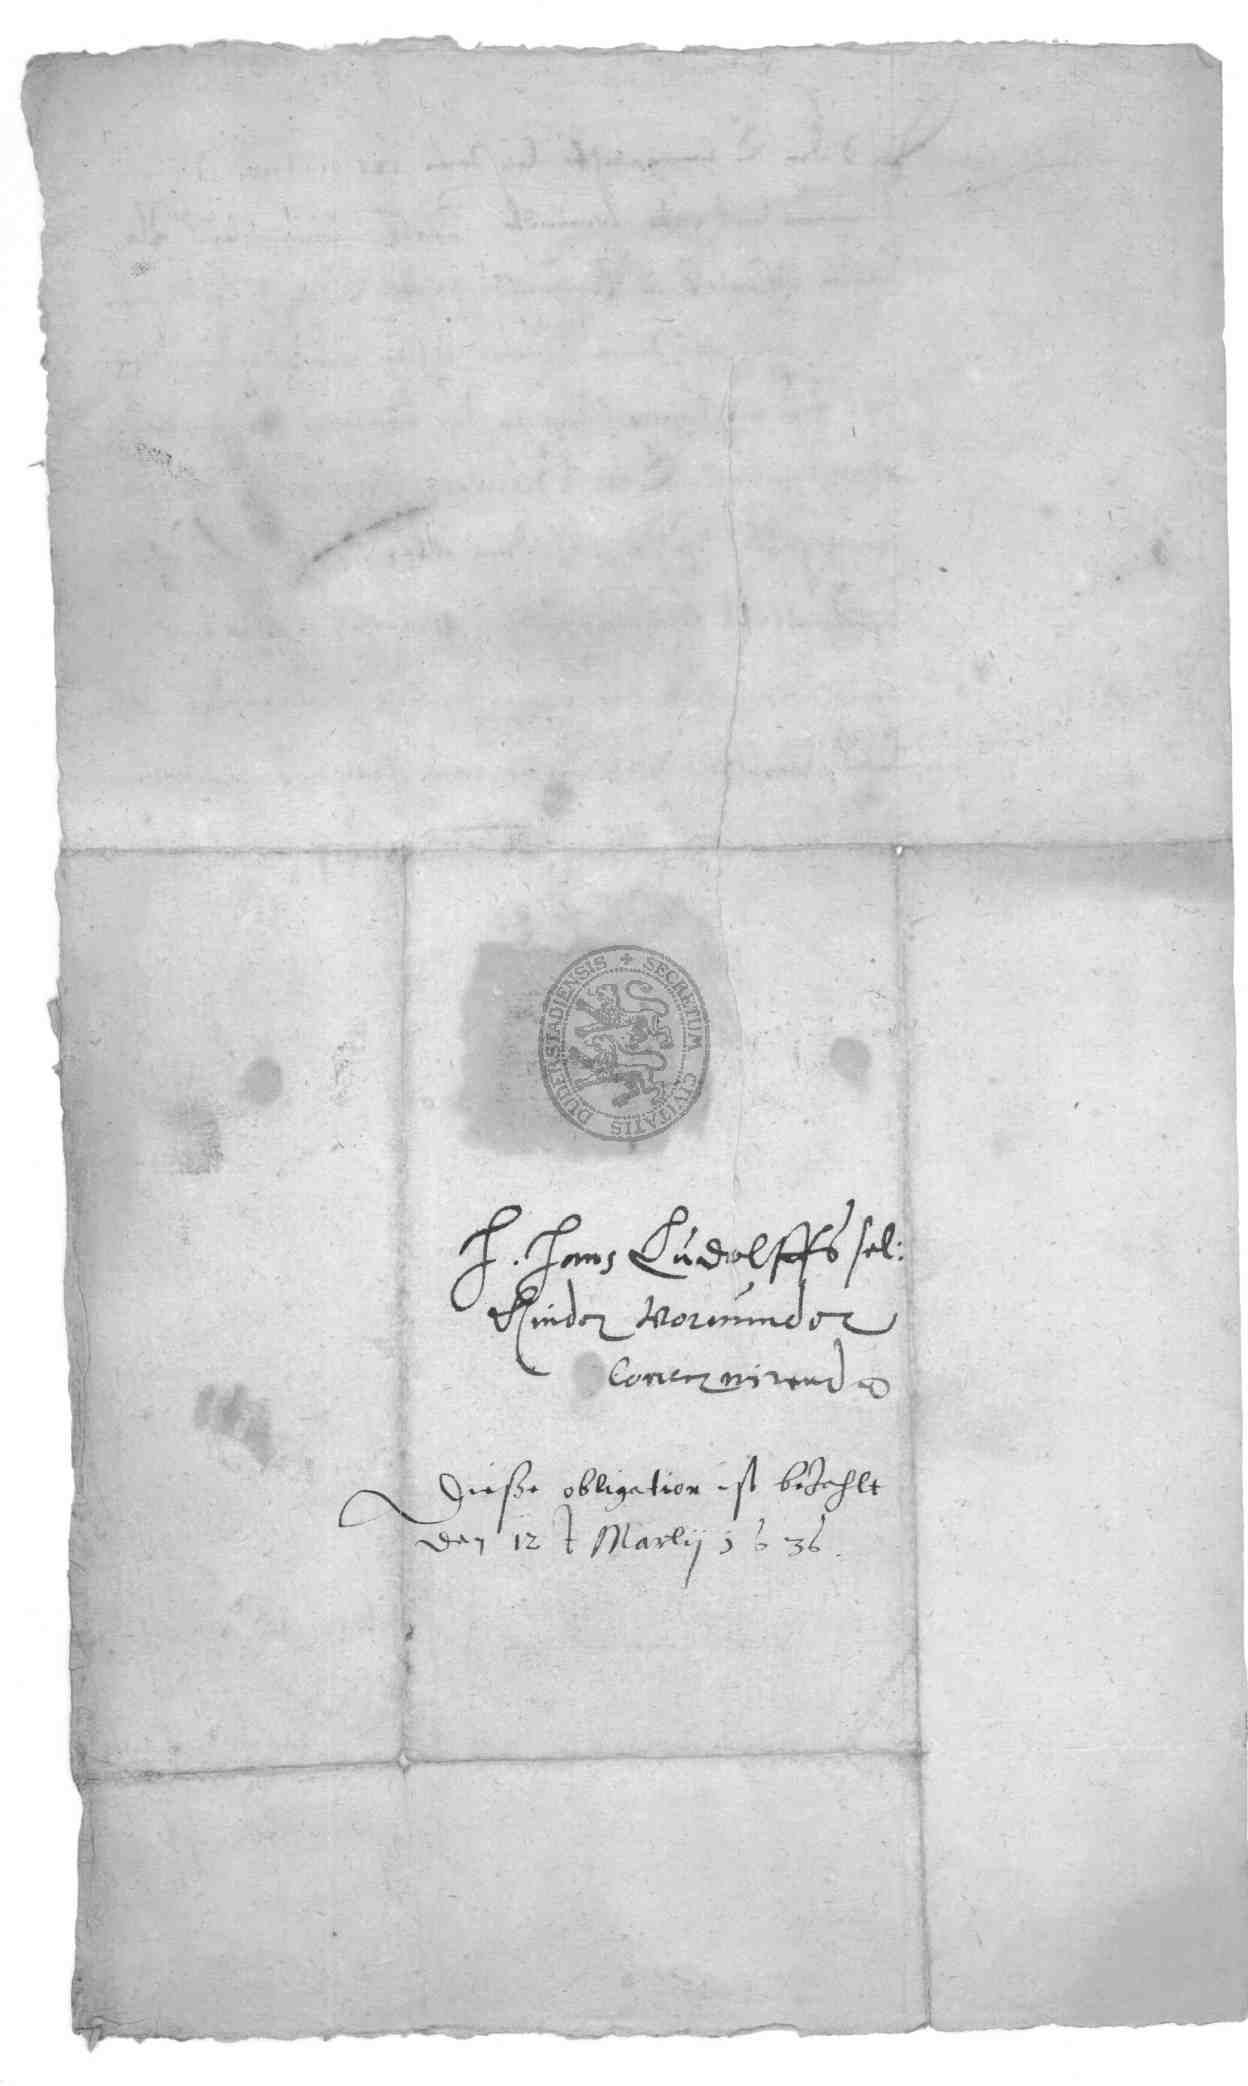 SECRETUM CIVITATIS DUDERSTADIENSIS
H. Hans Ludolffs sel:
Kinder Vormünder
Concernirend
Dieße obligation ist bezahlt
den 12 t Martij 1636.